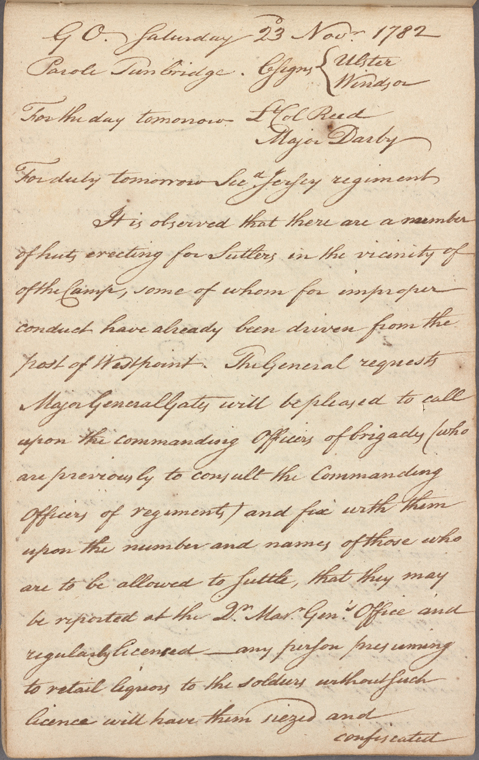 G O. Saturday 23 Novr 1782
Parole Tunbridge. CSigns { Ulster
Windsor
For the day tomorrow Lt Col Reed
Major Darby
For duty tomorrow Secd Jersey regiment
It is observed that there are a number
of huts erecting for Sutlers in the vicinity of
of the Camp, some of whom for improper
conduct have already been driven from the
post of Westpoint. The General requests
Major General Gates will be pleased to call
upon the commanding Officers of brigades (who
are previously to consult the Commanding
Officers of regiments) and fix with them
upon the number and names of those who
are to be allowed to suttle, that they may
be reported at the Qr Masr Genls Office and
regularly licenced — any person presuming
to retail liquors to the soldiers without such
licence will have them siezed and
confiscated